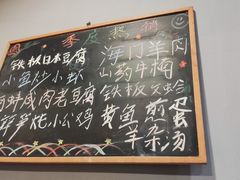 季度热销
铁板日本豆腐
小鱼炒小虾
河蚌咸肉老豆腐
笋炖小公鸡
海门羊肉
山药牛楠
铁板文蛤
黄鱼煎蛋
羊杂汤